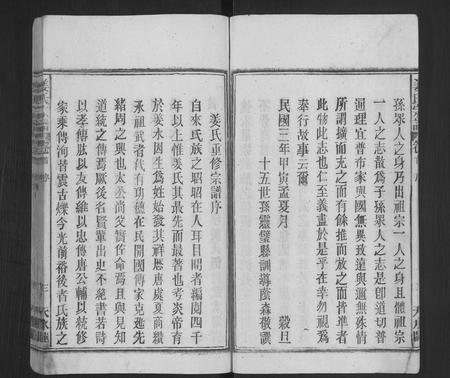 孫眾人之身乃出祖宗一人之身且體祖宗
一人之志散為子孫眾人之志是即道切普
通理宜普布家與國無異致遠與邇無殊情
所謂擴而充之而有餘推而放之而皆準者
此物此志也仁至義盡於是乎在幸勿視為
奉行故事云爾
民國三年甲寅孟夏月 穀旦
十五世孫靈璧縣訓導蔭森敬譔
姜氏重修宗譜序
自來氏族之昭昭在人耳目間者編閱四千
年以上惟姜氏其最先而最著也考炎帝育
於姜水因生為姓始發其祥歷唐虞夏商纘
承祖武者代有功德在民開國傳家克迪先
緒周之興也太公尚父實佐命焉且與見知
道統之傳焉厥後名賢輩出史不絕書若詩
以孝傳肱以友傳維以忠傳唐公輔以統修
家乘傳洵昔震古爍今光前裕後者氏族之